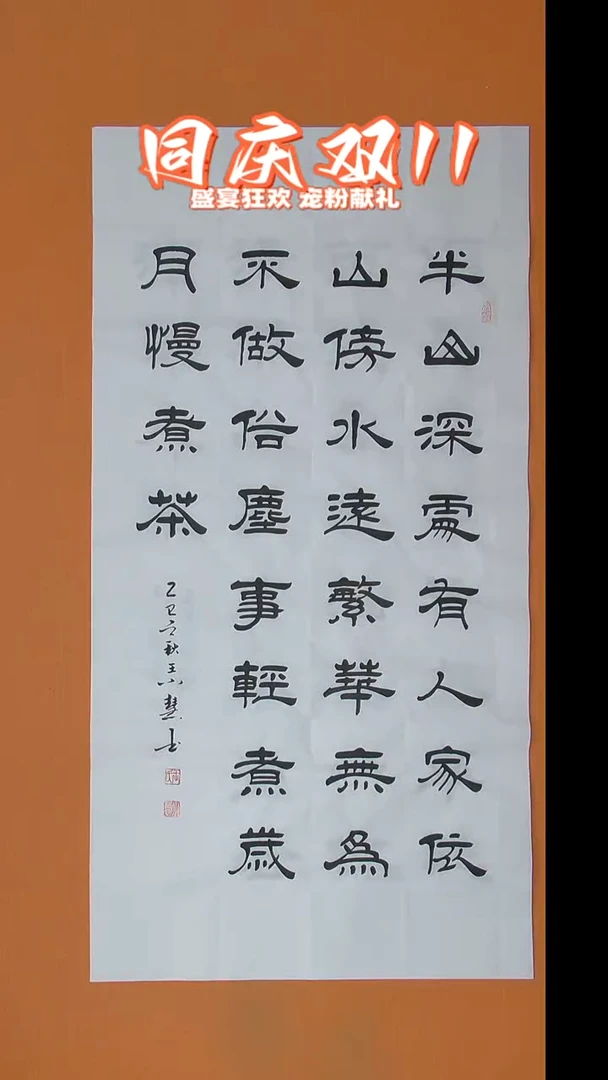 同庆双11
盛宴狂欢 宠粉献礼
半山深處有人家依
山傍水遠繁華無為
不做俗塵事輕煮歲
月慢煮茶
乙巳秋王慧书